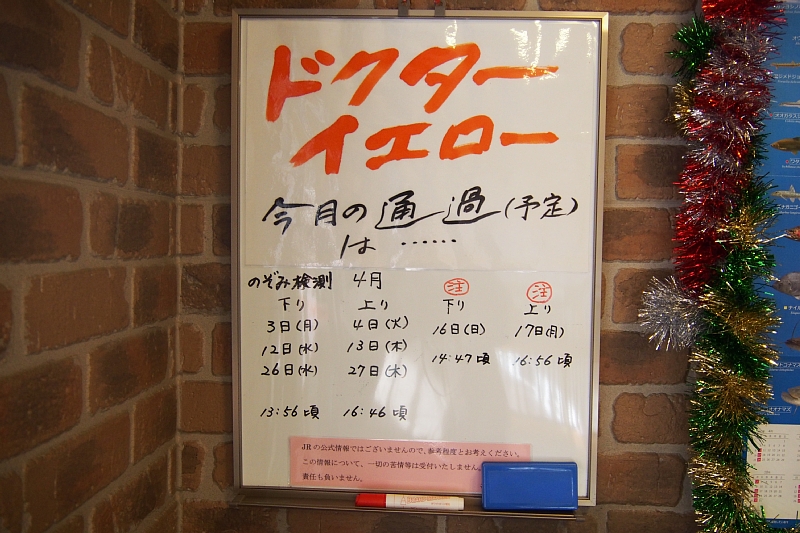 ドクター
イエロー
今月の通過(予定)
は……
のぞみ検測 4月 注 注
下り 上り 下り 上り
3日(月) 4日(火) 16日(日) 17日(月)
12日(水) 13日(木) 14:47頃 16:56頃
26日(水) 27日(木)
13:56頃 16:46頃
JRの公式情報ではございませんので、参考程度とお考えください。
この情報について、一切の苦情等は受付いたしません。
責任も負いません。